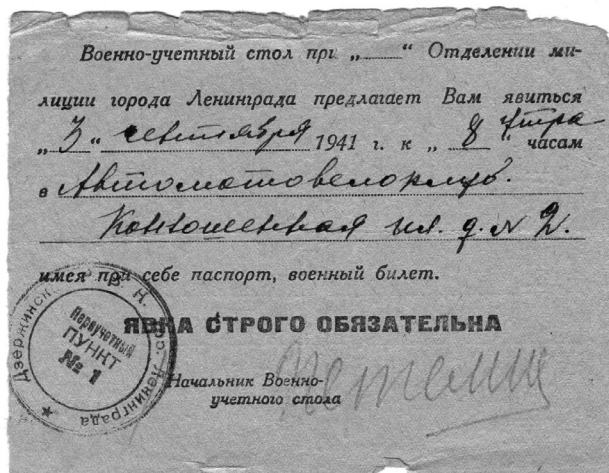 Военно-учетный стол при „ “ Отделении ми-
лиции города Ленинграда предлагает Вам явиться
„3“ сентября 1941 г. к „8“ утра часам
в Автомотовелоклуб.
Конюшенная пл. д. № 2.
имея при себе паспорт, военный билет.
ЯВКА СТРОГО ОБЯЗАТЕЛЬНА
Начальник Военно-
учетного стола
Дзержинск Р. В. К. гор. Ленинграда
Первоучетный
ПУНКТ
№ 1